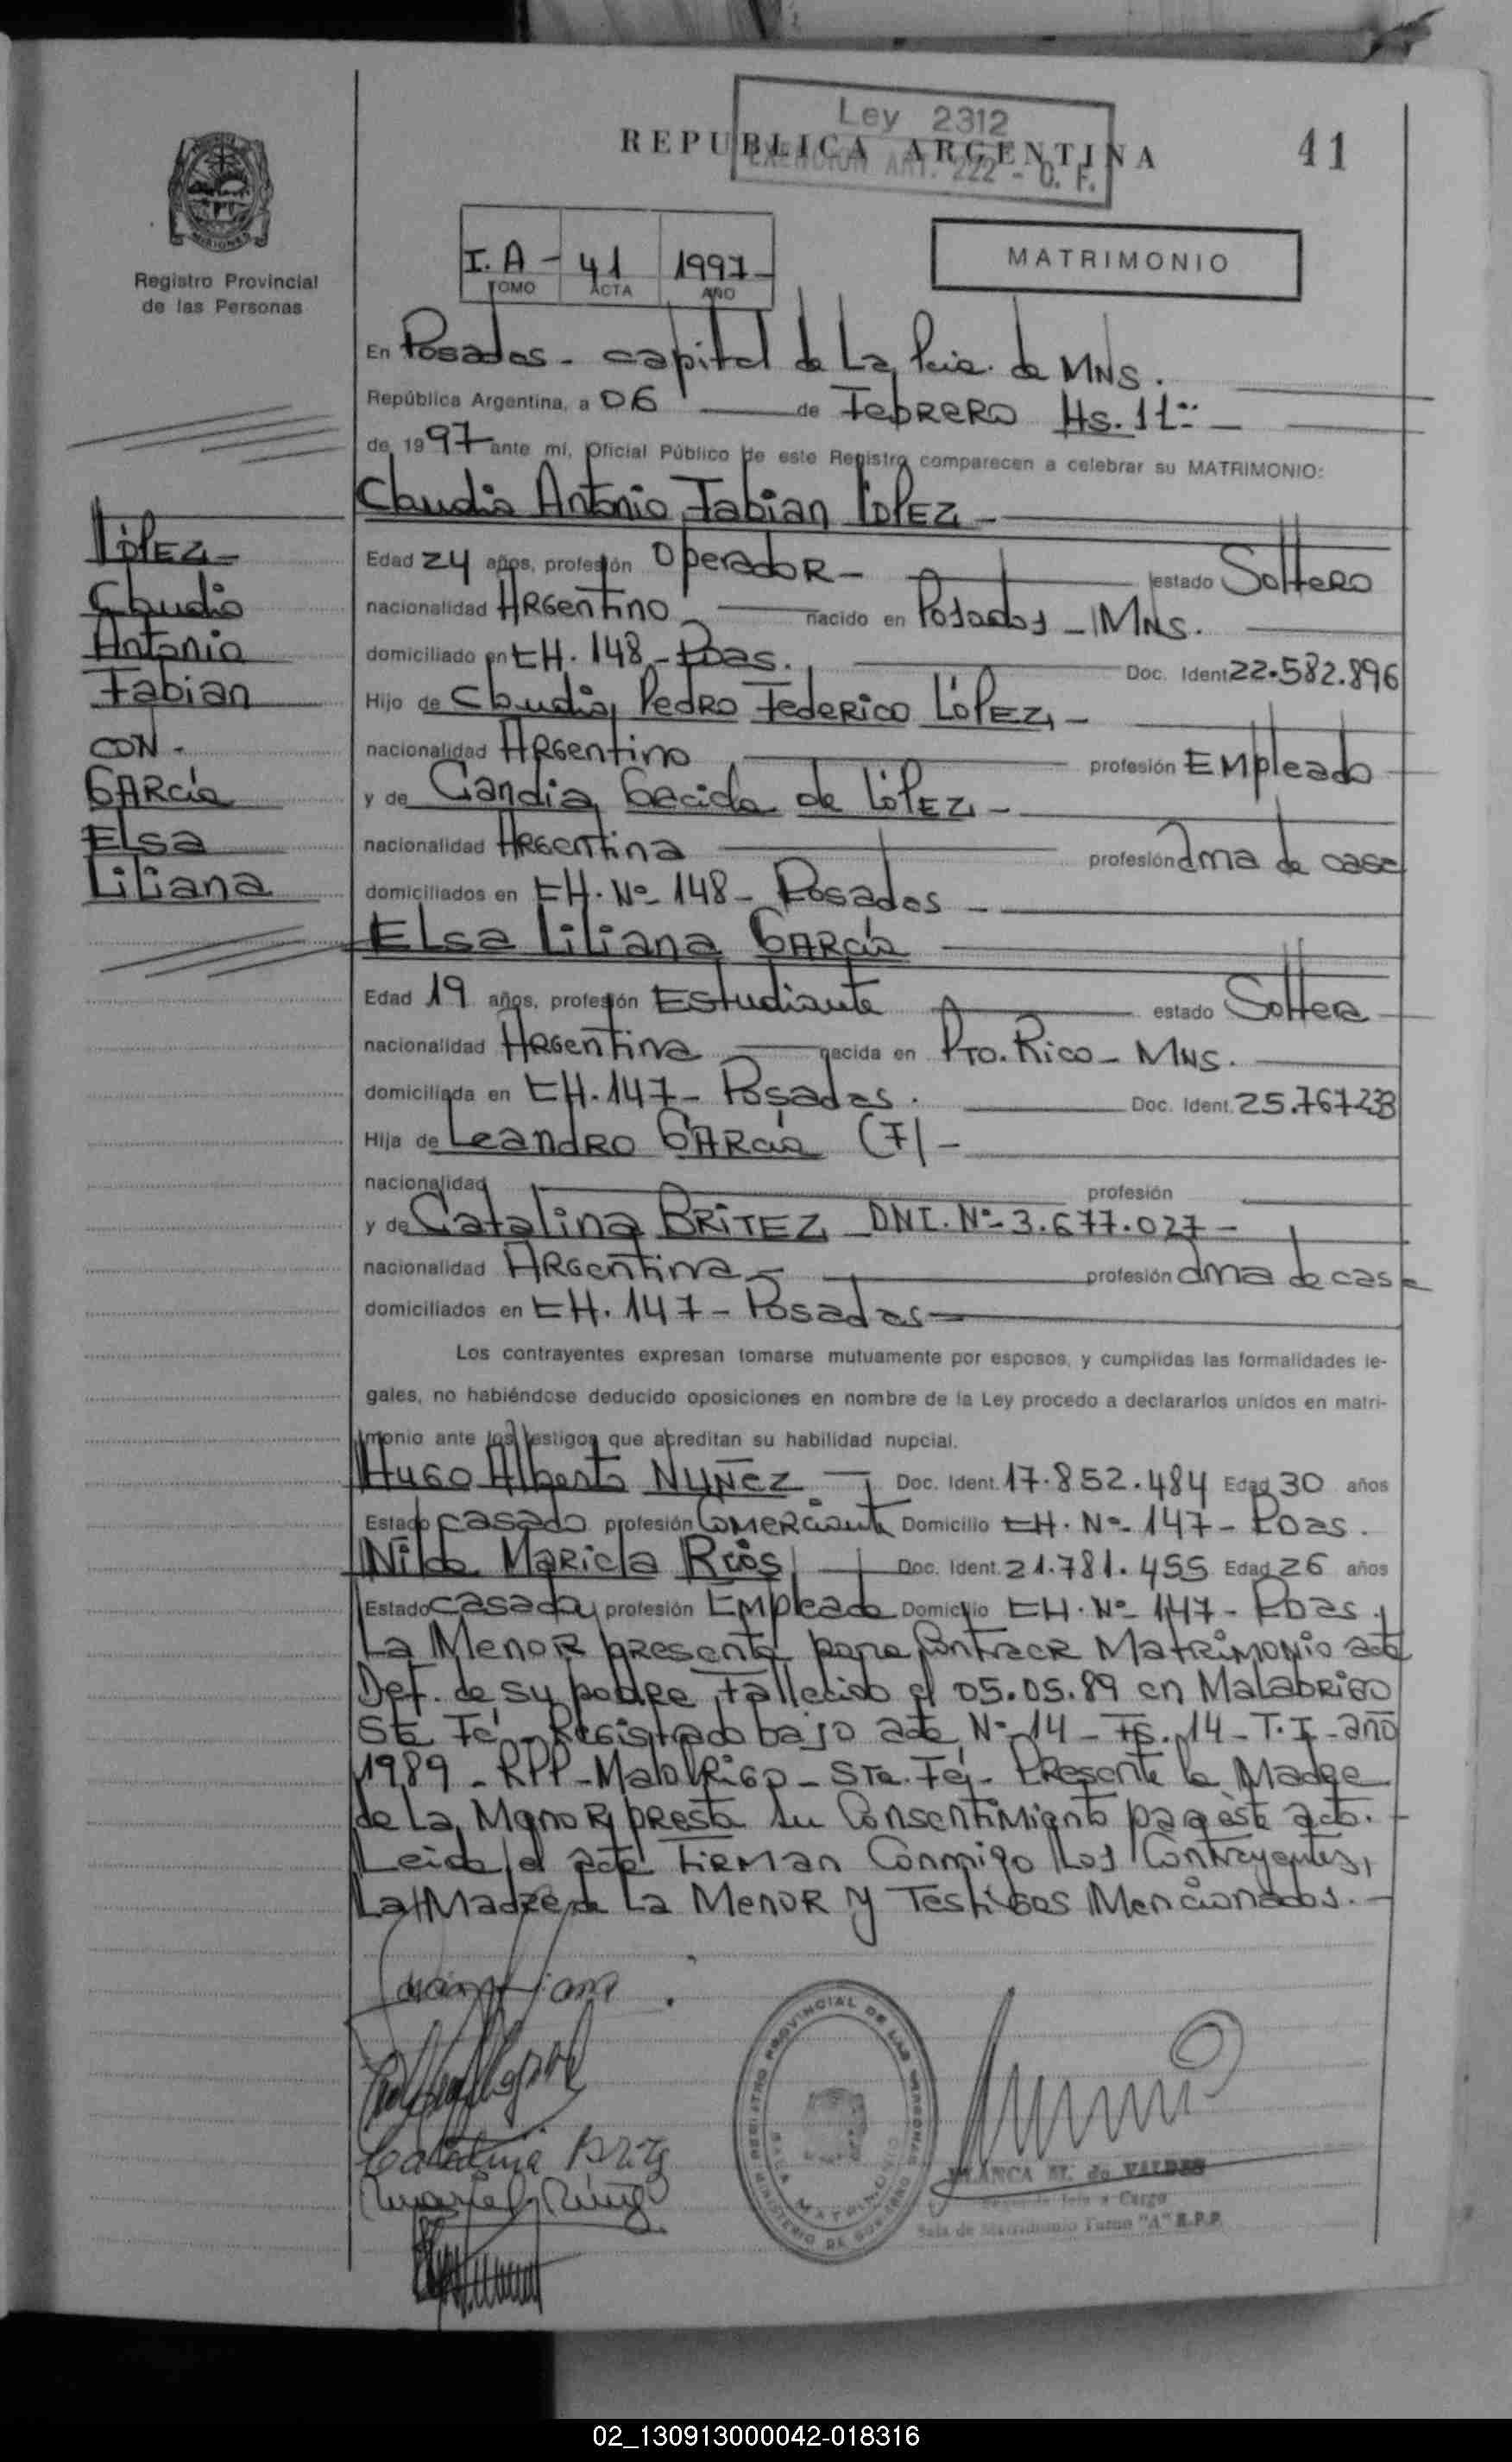 Ley 2312
REPUBLICA ARGENTINA
EXENCION ART. 222 - C. F.
41
MISIONES
Registro Provincial
de las Personas
I. A - 41 1997-
TOMO ACTA AÑO
MATRIMONIO
En Posadas - capital de La Pcia. de MNS.
República Argentina, a 06 de Febrero Hs. 11:-
de 1997 ante mí, Oficial Público de este Registro comparecen a celebrar su MATRIMONIO:
Claudio Antonio Fabian LÓPEZ -
LÓPEZ -
Claudio
Antonio
Fabian
CON -
GARCÍA
Elsa
Liliana
Edad 24 años, profesión Operador - estado Soltero
nacionalidad Argentino nacido en Posadas - MNS.
domiciliado en CH. 148 - Pdas. Doc. Ident. 22.582.896
Hijo de Claudio Pedro Federico LÓPEZ -
nacionalidad Argentino profesión Empleado
y de Candia de LÓPEZ -
nacionalidad Argentina profesión ama de casa
domiciliados en CH. Nº 148 - Posadas -
Elsa Liliana GARCÍA
Edad 19 años, profesión Estudiante estado Soltera
nacionalidad Argentina nacida en Pto. Rico - MNS.
domiciliada en CH. 147 - Posadas. Doc. Ident. 25.767.233
Hija de Leandro GARCÍA (F) -
nacionalidad profesión
y de Catalina BRITEZ DNI. Nº 3.677.027 -
nacionalidad Argentina - profesión ama de casa
domiciliados en CH. 147 - Posadas
Los contrayentes expresan tomarse mutuamente por esposos, y cumplidas las formalidades le-
gales, no habiéndose deducido oposiciones en nombre de la Ley procedo a declararlos unidos en matri-
monio ante los testigos que acreditan su habilidad nupcial.
Hugo Alberto NUÑEZ - Doc. Ident. 17.852.484 Edad 30 años
Estado casado profesión Comerciante Domicilio CH. Nº 147 - Pdas.
Nilda Mariela Ríos Doc. Ident. 21.781.455 Edad 26 años
Estado casada profesión Empleada Domicilio CH. Nº 147 - Pdas.
La Menor presenta para Contraer Matrimonio acta
Def. de su padre, fallecido el 05.05.89 en Malabrigo
Sta Fé - Registrado bajo acta Nº 14 - Fs. 14 - T. I - año
1989 - RPP - Malabrigo - Sta. Fé - Presente la Madre
de La Menor presta su Consentimiento para éste acto.
Leida el acta Firman Conmigo Los Contrayentes,
La Madre de La Menor y Testigos Mencionados. -
Catalina Britez
REGISTRO PROVINCIAL DE LAS PERSONAS
MINISTERIO DE GOBIERNO
SALA MATRIMONIO
BLANCA M. de VALDES
a Cargo
Sala de Matrimonio Turno "A" R.P.P.
02_130913000042-018316